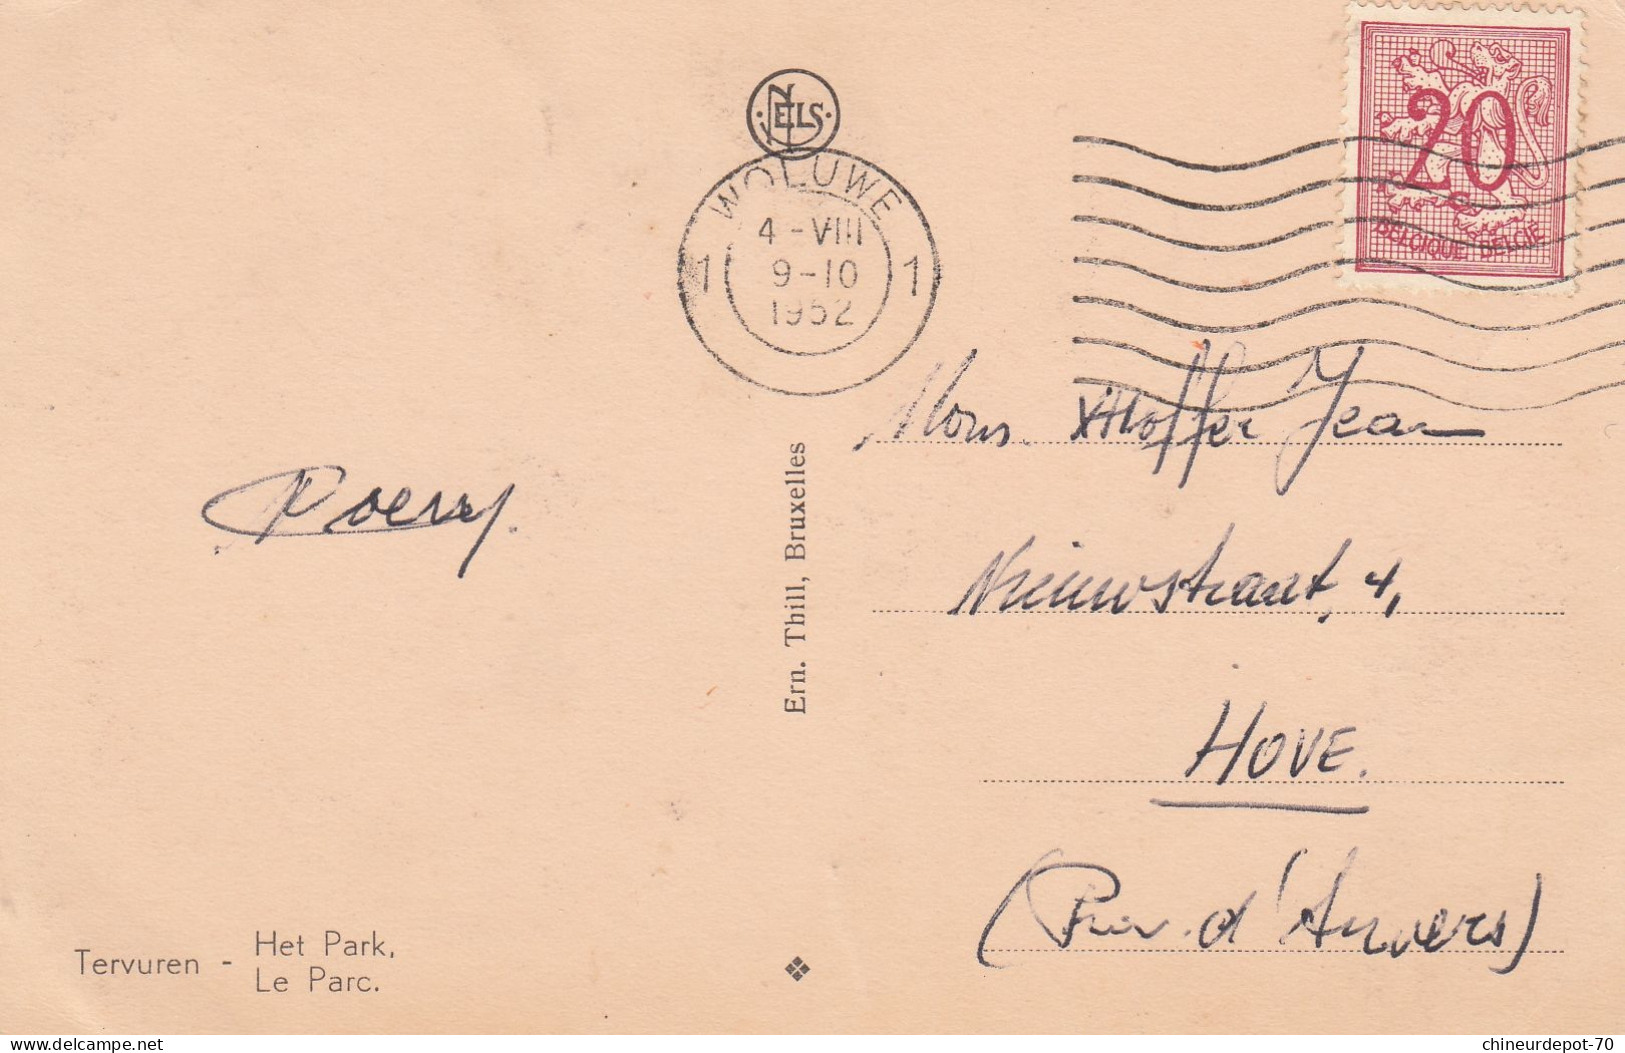 NELS
WOLUWE
4-VIII
1 9-10 1
1952
20
BELGIQUE BELGIË
Mons. Jean
Nieuwstraat, 4,
HOVE.
(Prov. d'Anvers)
Ern. Thill, Bruxelles
Tervuren - Het Park,
Le Parc.
delcampe.net
chineurdepot-70